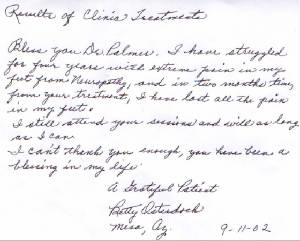 Results of Clinic Treatments
Bless you Dr. Palmer. I have struggled
for four years with extreme pain in my
feet from Neuropathy, and in two months time,
from your treatment, I have lost all the pain
in my feet.
I still attend your sessions and will as long
as I can.
I can't thank you enough, you have been a
blessing in my life.
A Grateful Patient
Betty
Mesa, Az. 9-11-02